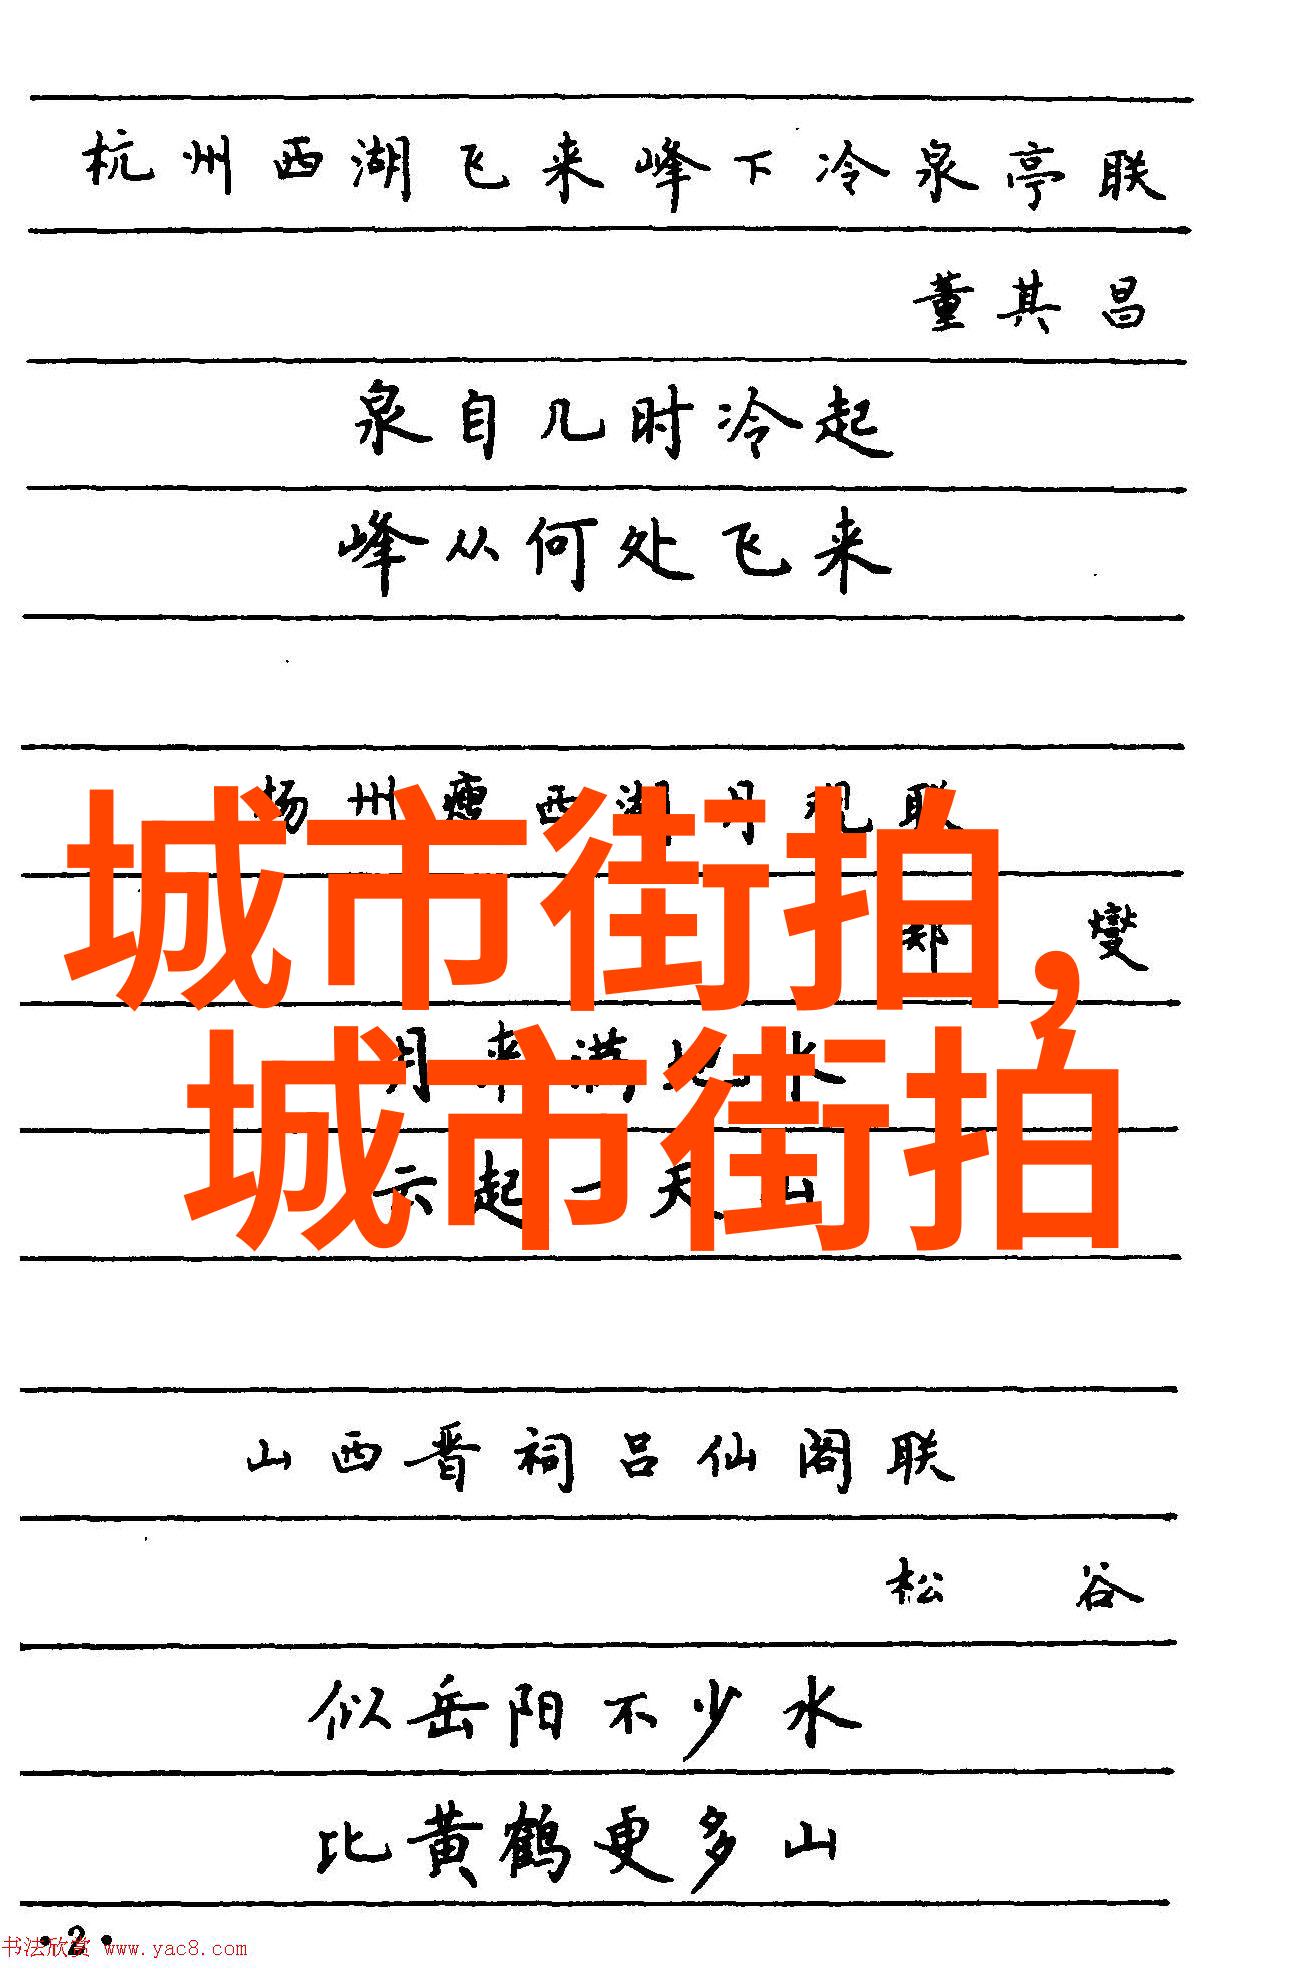 杭州西湖飞来峰下冷泉亭联
董其昌
泉自几时冷起
峰从何处飞来
扬州瘦西湖月观联
郑燮
月来满地水
云起一天山
城市街拍,
城市街拍
山西晋祠吕仙阁联
松谷
似岳阳不少水
比黄鹤更多山
·2·
书法欣赏 www.yac8.com